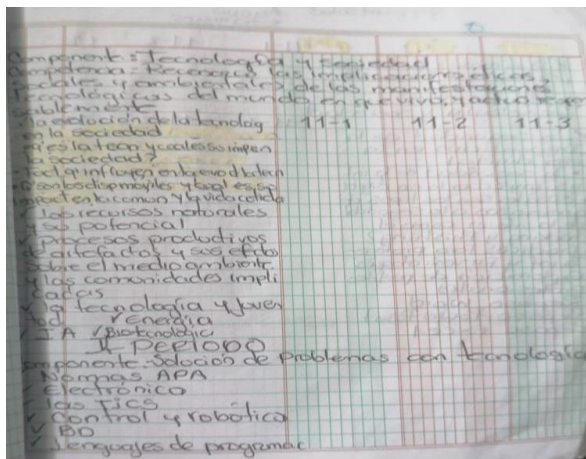 Componente: Tecnología y Sociedad
Competencia: Reconozco las implicaciones éticas,
sociales y ambientales de las manifestaciones
tecnológicas del mundo en que vivo, y actúo respo
sablemente
La evolución de la tecnolog 11-1 11-2 11-3
en la sociedad
es la tecn y cual es so impen
la sociedad?
Fact q influyen en la evo d la tecn
son los disp moviles y cual es so
impact en la comon y la vida cotidia
los recursos naturales
y so potencial
procesos productivos
de artefactos y sus efectos
sobre el medio ambiente
y las comonidades impli
cadas
La tecnología y Juven
tod ✓ energía
✓ IA ✓ Biotecnología
II PERIODO
Componente: Solocion de problemas con tecnología
✓ Normas APA
✓ Electrónica
✓ las TICS
✓ Control y robótica
✓ BD
✓ lenguajes de programac